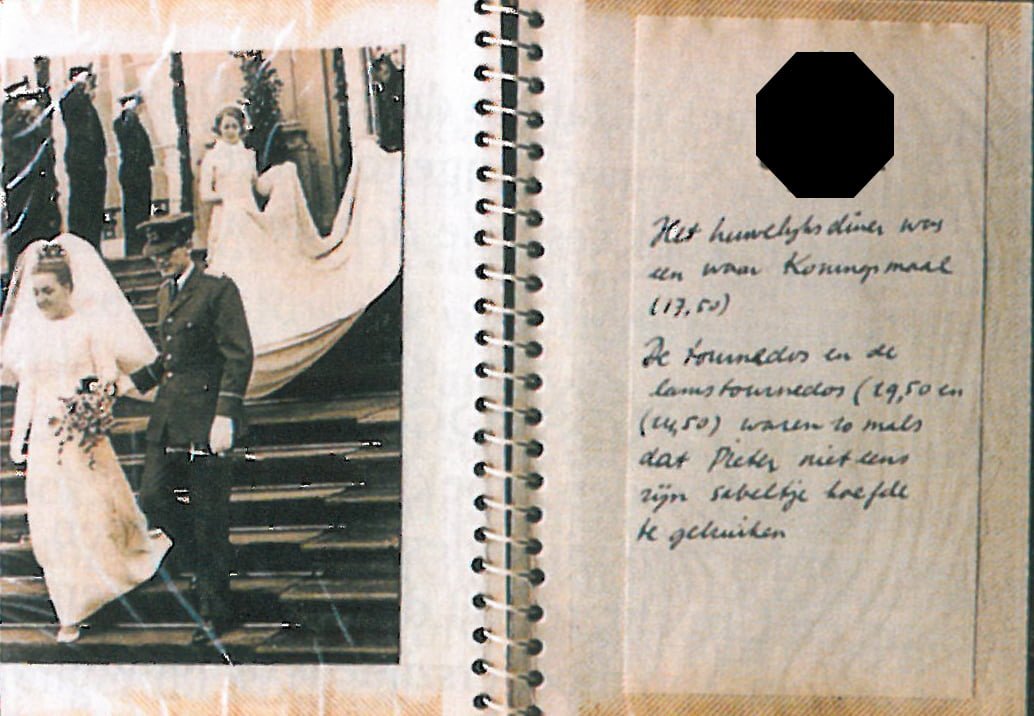 Het huwelijksdiner was
een waar Koningsmaal
(17,50)
De tournedos en de
lamstournedos (29,50 en
(24,50) waren zo mals
dat Pieter niet eens
zijn sabeltje hoefde
te gebruiken